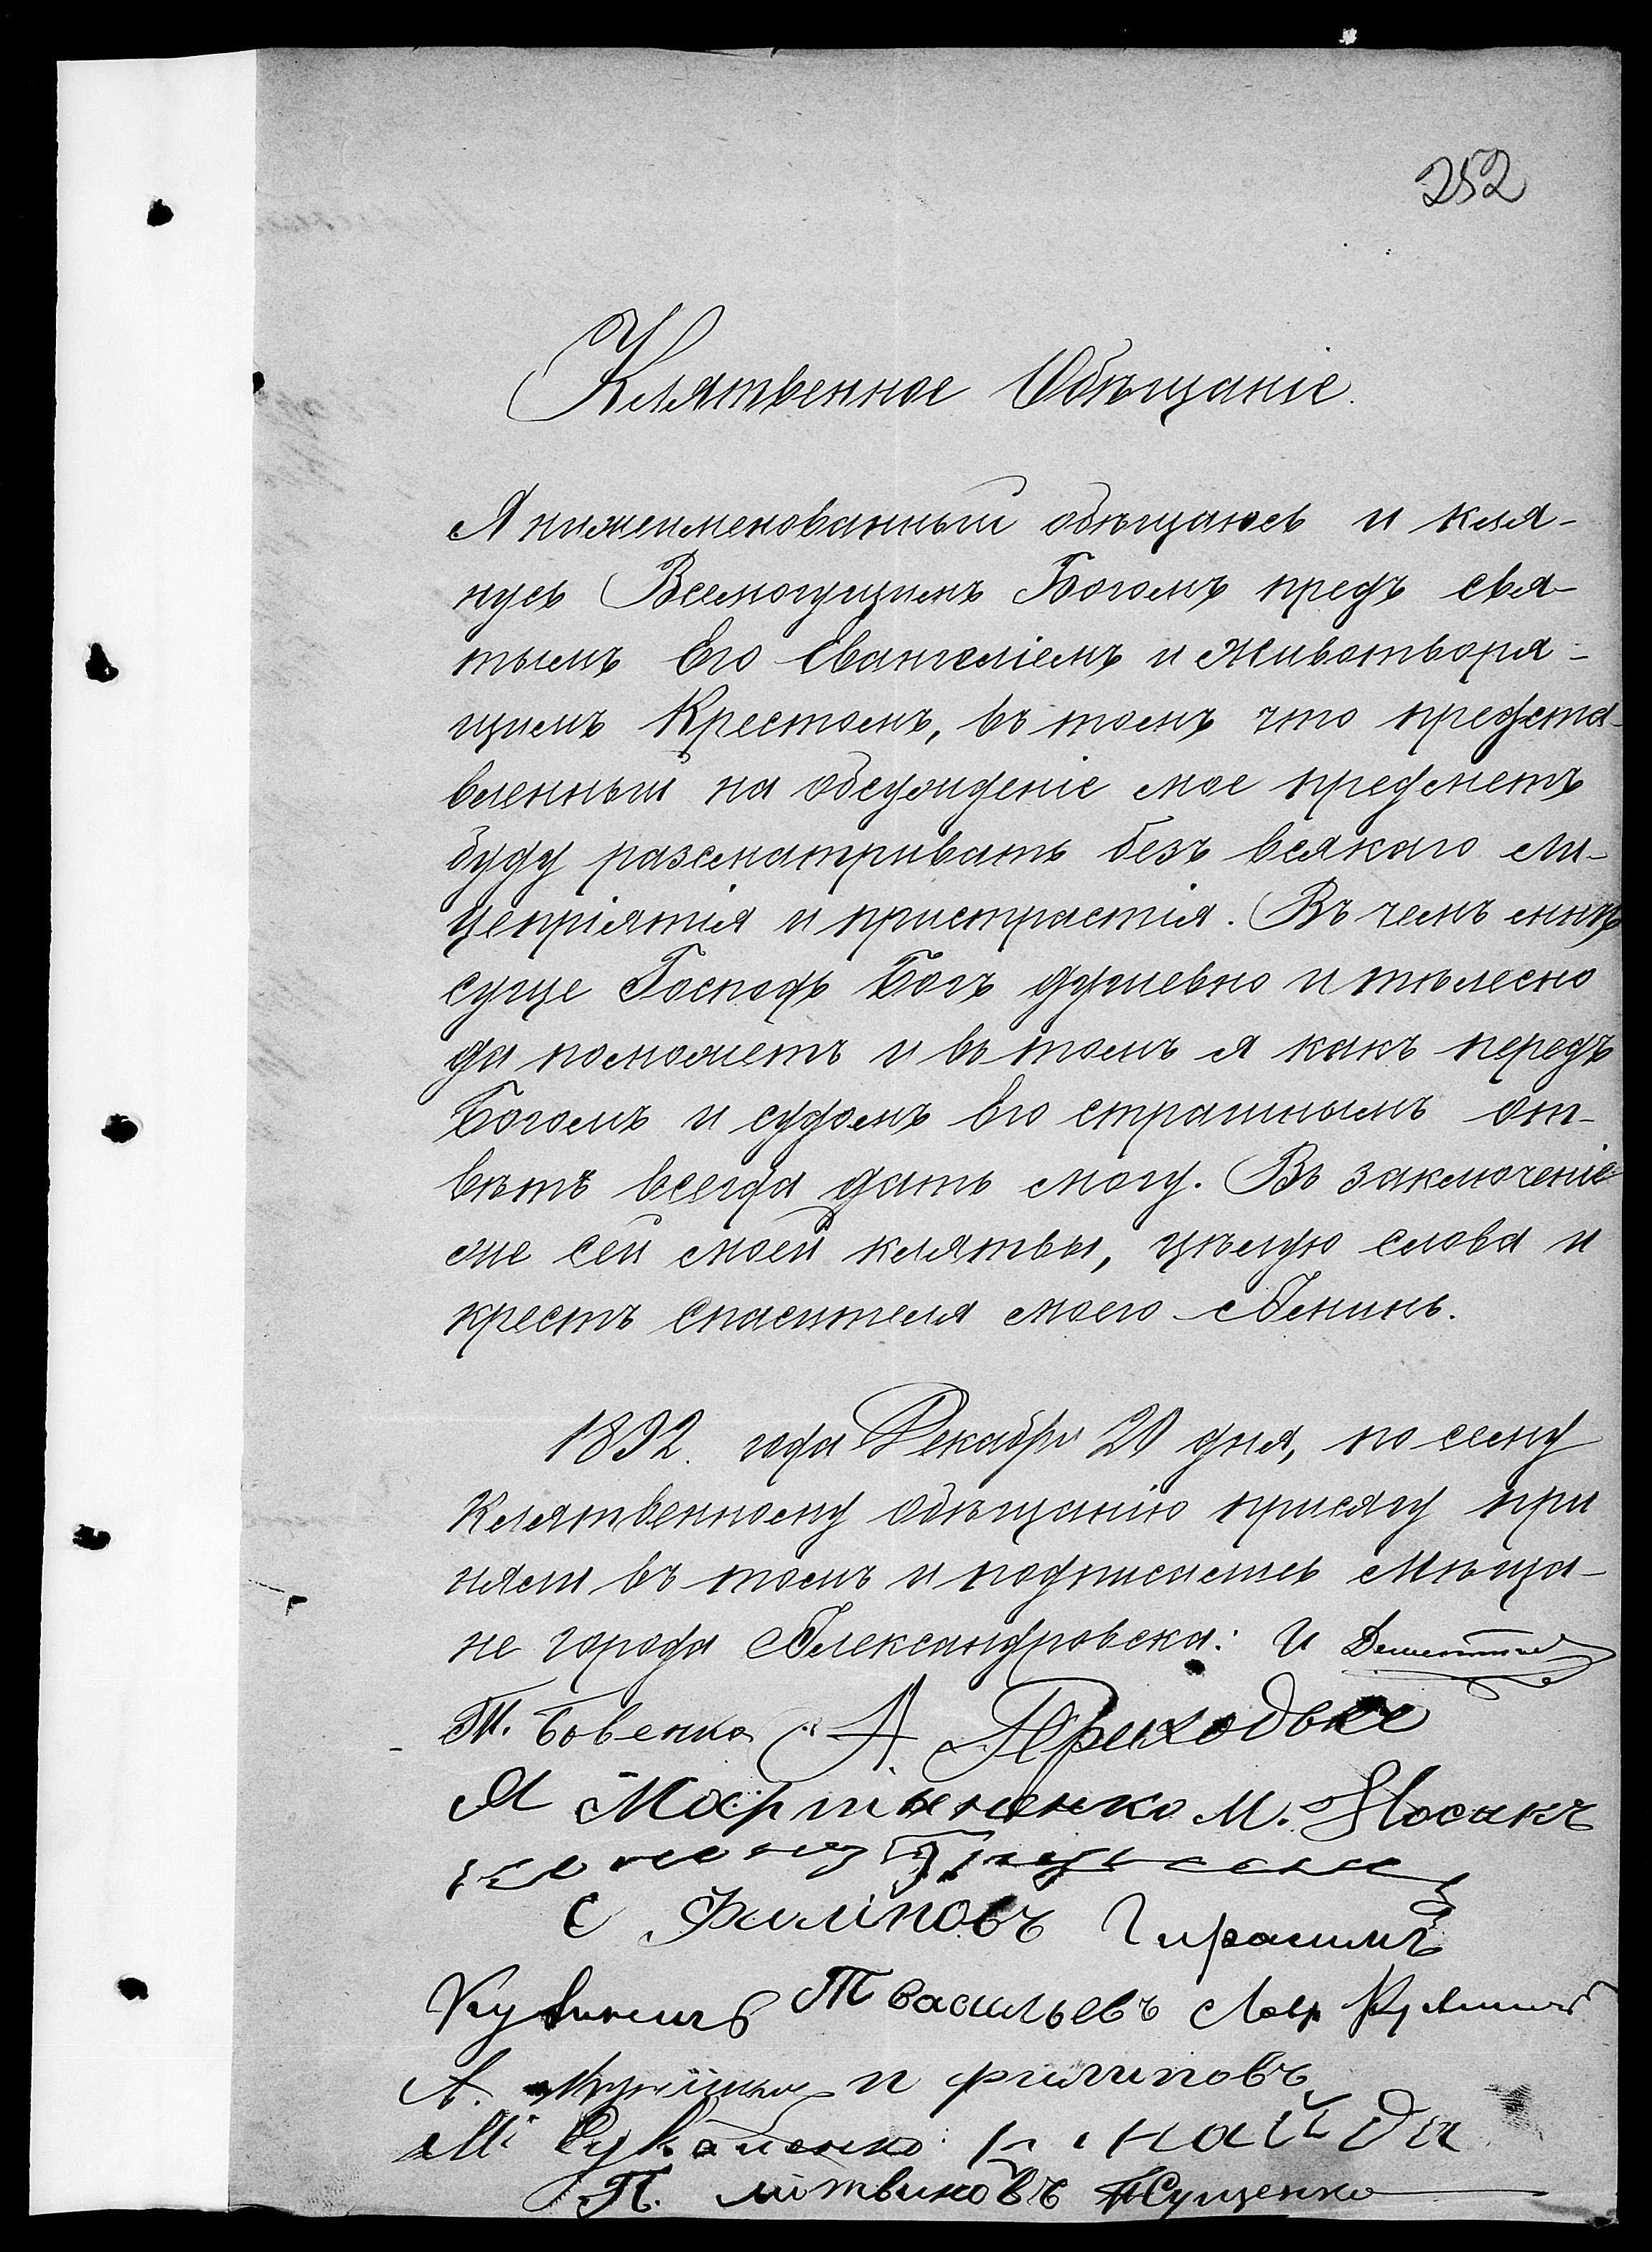 252
Клятвенное Обѣщаніе.
Я нижеименованный обѣщаюсь и кля-
нусь Всемогущимъ Богомъ предъ свя-
тымъ Его Евангеліемъ и Животворя-
щимъ Крестомъ, въ томъ что предста-
вленный на обсужденіе мое предметъ
буду разсматривать безъ всякаго ли-
цепріятія и пристрастія. Въ чемъ мнѣ
суще Господь Богъ душевно и тѣлесно
да поможетъ и въ томъ я какъ передъ
Богомъ и судомъ Его страшнымъ от-
вѣтъ всегда дать могу. Въ заключеніе
же сей моей клятвы, цѣлую слова и
крестъ спасителя моего Аминь.
1892. года Декабря 20 дня, по сему
Клятвенному обѣщанію присягу при
няли въ томъ и подписались Мѣща-
не города Александровска: И
Т. Бовенко А. Приходько
Я Мартыненко М. Носакъ
С Филіповъ Гирасимъ
Т Васильевъ Лавр
А. и филиповъ
М найда
П. литвиновъ Сущенко